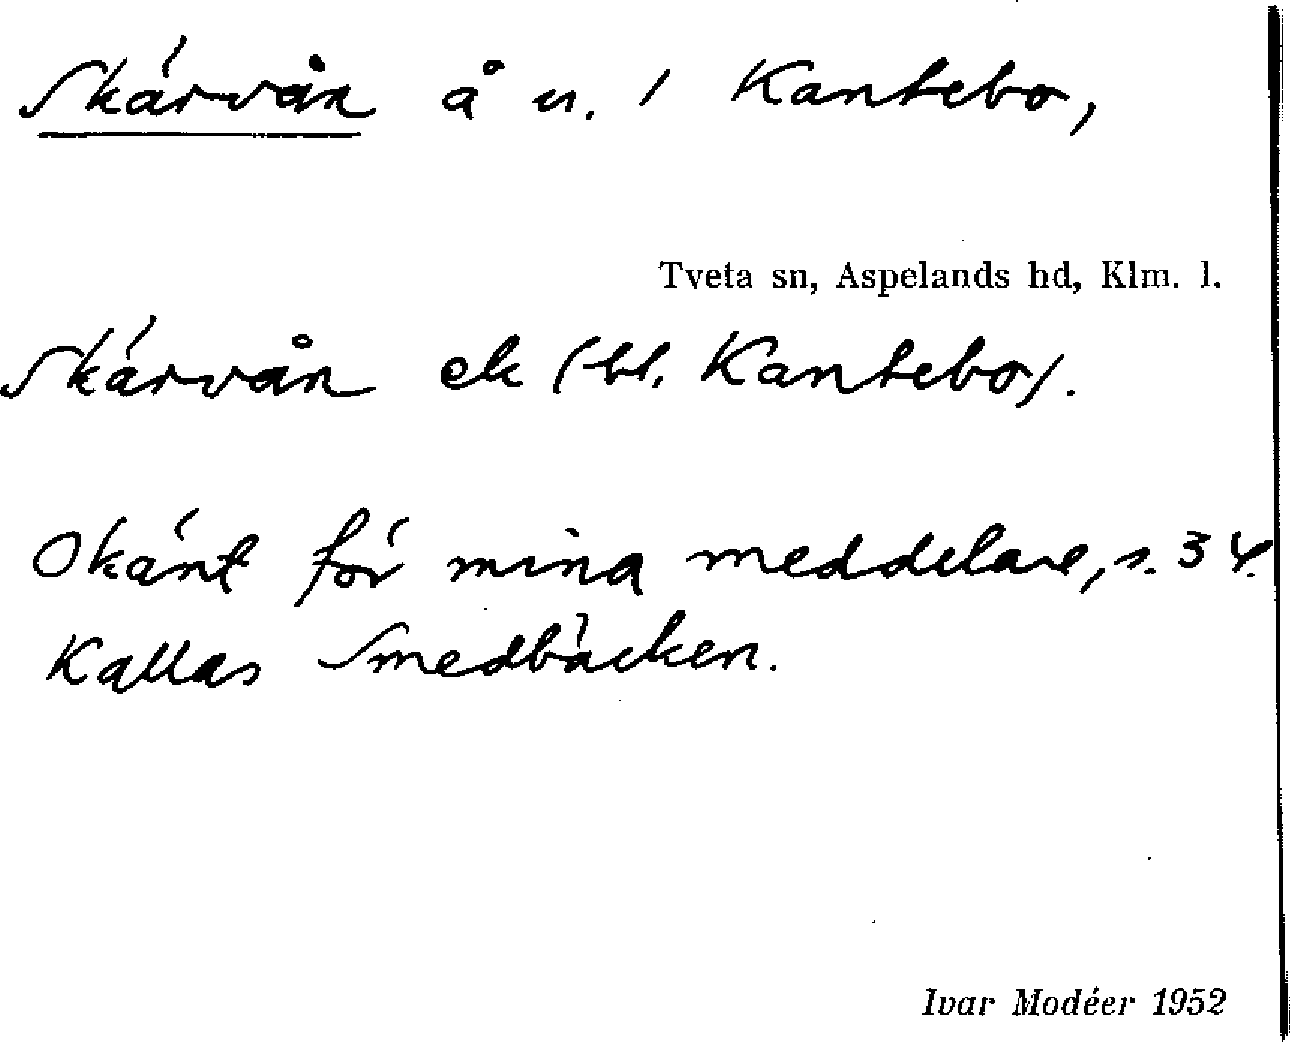 Skärvån å u. / Kantebo,
Tveta sn, Aspelands hd, Klm. l.
Skärvån ek (bl. Kantebo).
Okänt för mina meddelare, s. 34.
Kallas Smedbäcken.
Ivar Modéer 1952